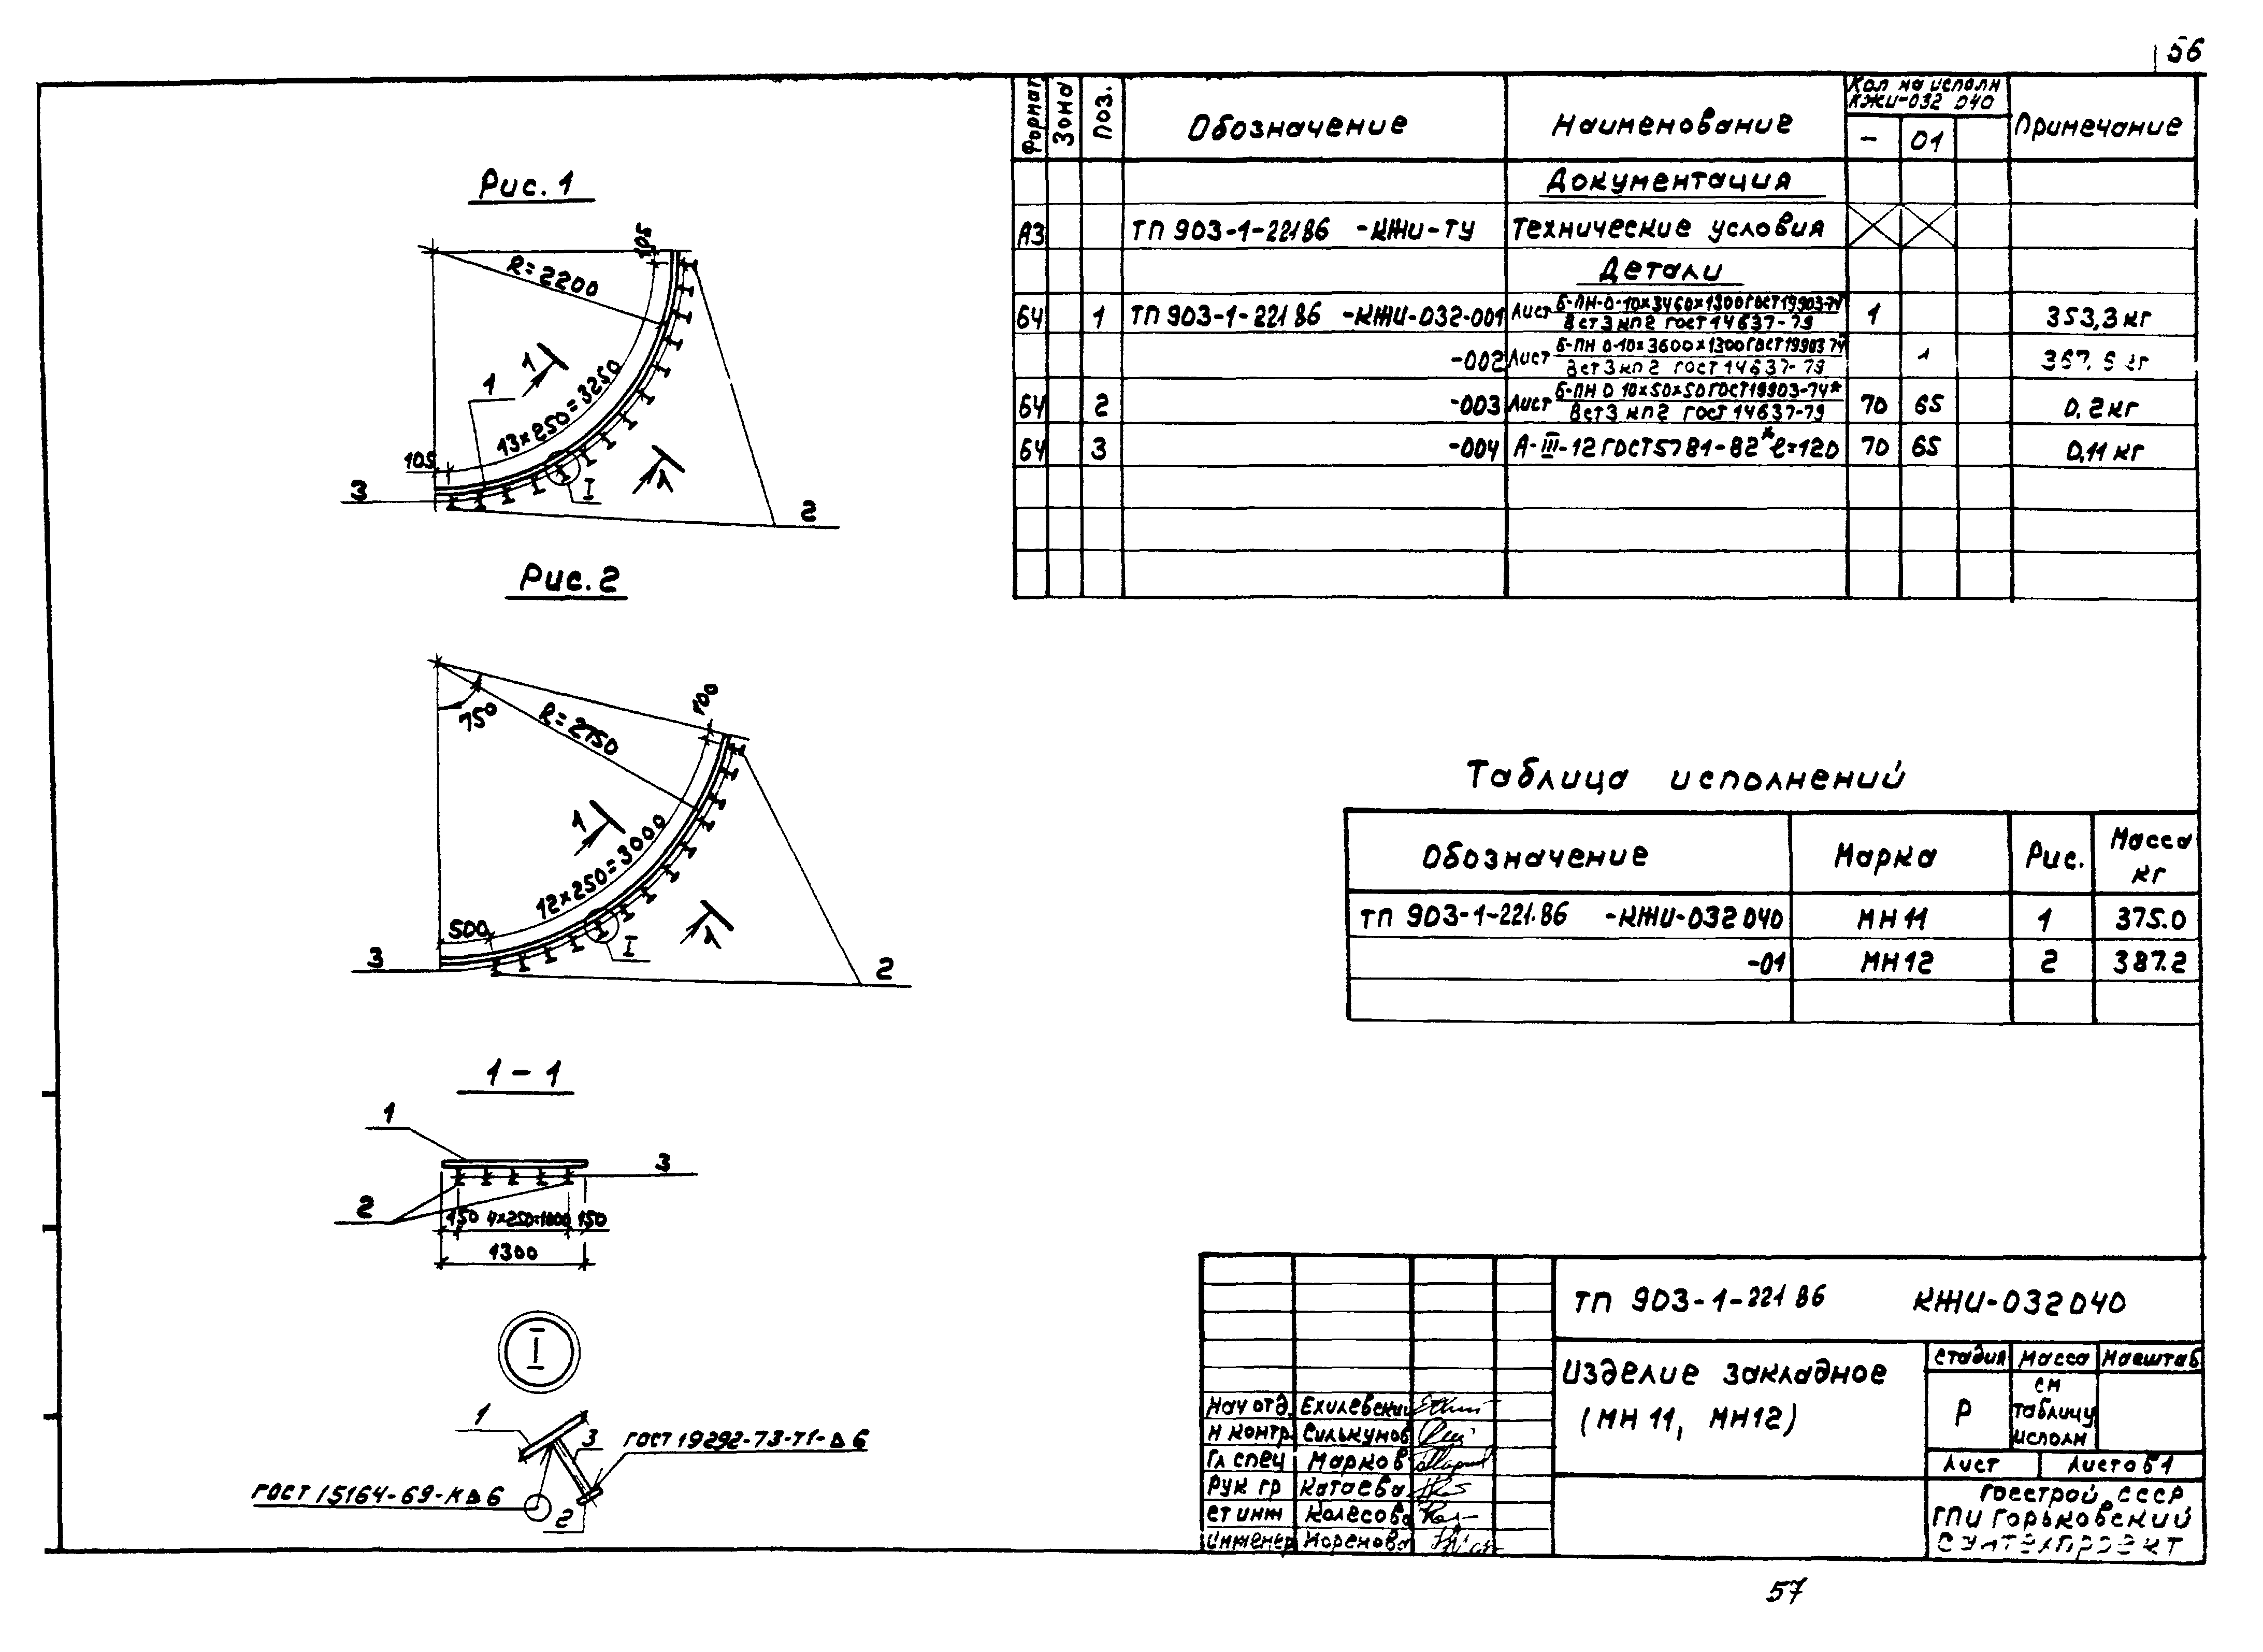 56
Формат Зона Поз. Обозначение Наименование Кол на исполн КЖИ-032 040 Примечание
- 01
Документация
А3 ТП 903-1-221 86 -КЖИ-ТУ Технические условия
Детали
Б4 1 ТП 903-1-221 86 -КЖИ-032-001 Лист Б-ПН-О-10×3460×1300 ГОСТ 19903-74* 1 353,3 кг
Вст3кп2 ГОСТ 14637-79
-002 Лист Б-ПН О-10×3600×1300 ГОСТ 19903 74* 1 367,6 кг
Вст3кп2 ГОСТ 14637-79
Б4 2 -003 Лист Б-ПН О 10×50×50 ГОСТ 19903-74* 70 65 0,2 кг
Вст3кп2 ГОСТ 14637-79
Б4 3 -004 А-III-12 ГОСТ 5781-82* ℓ=120 70 65 0,11 кг
Рис. 1
105
R=2200
1
1
13×250=3250
105
1
3
I
2
Рис. 2
75°
R=2750
100
1
12×250=3000
500
1
3
I
2
Таблица исполнений
Обозначение Марка Рис. Масса кг
ТП 903-1-221.86 -КЖИ-032 040 МН 11 1 375.0
-01 МН 12 2 387.2
1-1
1
3
2
150 4×250=1000 150
1300
I
1
3
ГОСТ 19292-73-Т1-Δ6
ГОСТ 15164-69-КΔ6
2
ТП 903-1-221 86 КЖИ-032 040
Изделие закладное
(МН 11, МН12)
Стадия Масса Масштаб
Р см таблицу исполн
Лист Листов 1
Госстрой СССР
ГПИ Горьковский
Сантехпроект
Нач отд. Ехилевский
Н контр. Силькунов
Гл спец Марков
Рук гр Катаева
Ст инж Колесова
Инженер Норенова
57